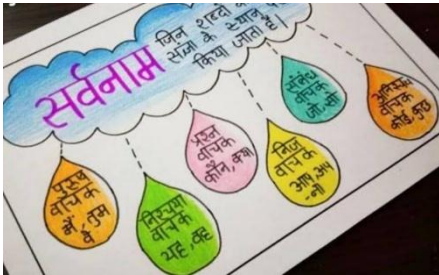 सर्वनाम
जिन शब्दों
संज्ञा के स्थान
किया जाता है।
पुरुष
वाचक
मैं, तुम
वे
निश्चय
वाचक
यह, वह
प्रश्न
वाचक
कौन, क्या
निज
वाचक
आप, अप
-ना
संबंध
वाचक
जो, सो
वाचक
कोई, कुछ